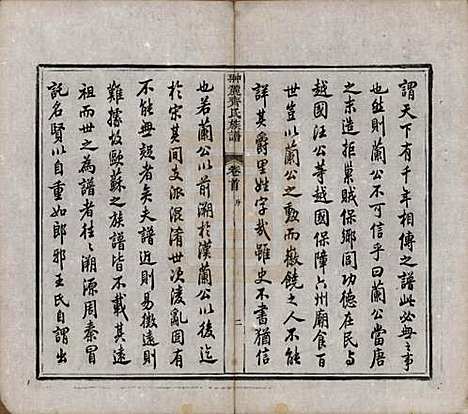 謂天下有千年相傳之譜此必無之事
也然則蘭公不可信乎曰蘭公當唐
之末造拒巢賊保鄉閭功德在民与
越國汪公等越國保障六州廟食百
世豈以蘭公之勳而徼饒之人不能
詳其爵里姓字哉雖史不書猶信
翀麓齊氏族譜
卷首
序
二
也若蘭公以前溯於漢蘭公以後迄
於宋其间支派混淆世次淩亂固有
不能無疑者矣夫譜近則易徵遠則
難據故歐蘇之族譜皆不載其遠
祖而世之為譜者往々溯源周秦冒
託名賢以自重如郎邪王氏自謂出